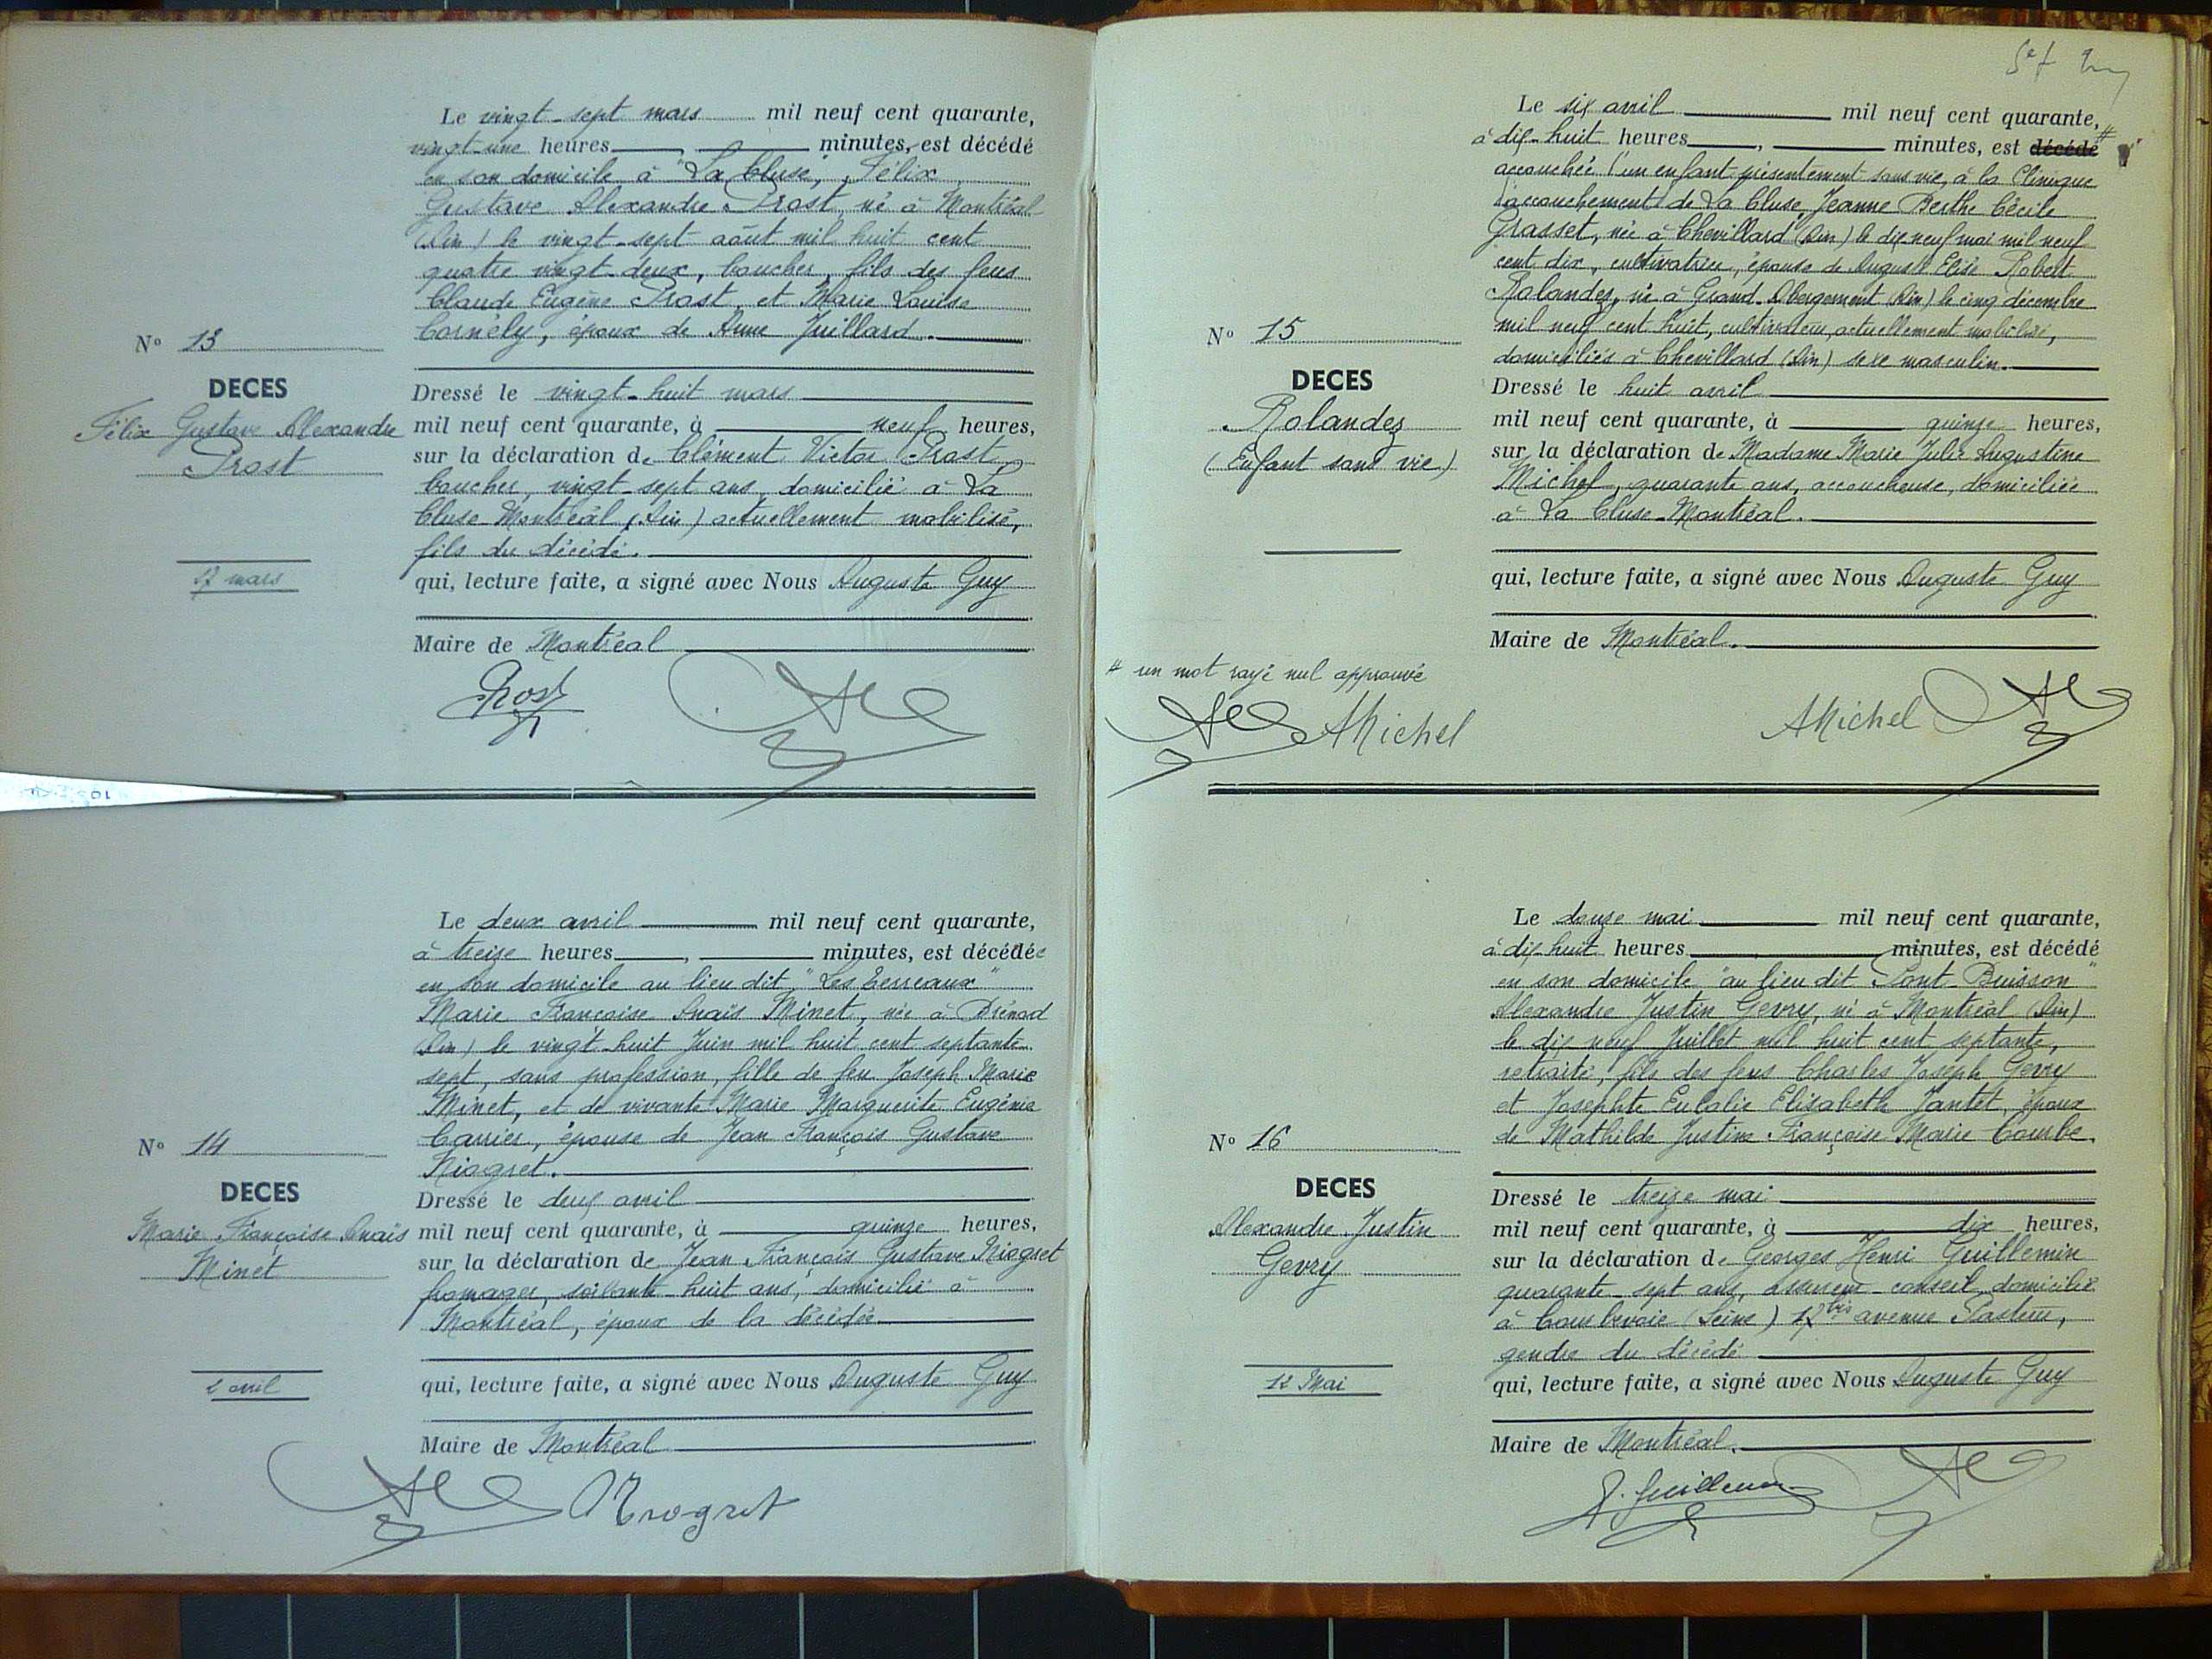 Le vingt-sept mars mil neuf cent quarante,
vingt-une heures, minutes, est décédé
en son domicile à "La Cluse", Félix
Gustave Alexandre Prost, né à Montréal
(Ain) le vingt-sept août mil huit cent
quatre vingt-deux, boucher, fils des feus
Claude Eugène Prost, et Marie Louise
Cornély, époux de Anne Juillard.
N° 13
DECES
Félix Gustave Alexandre
Prost
27 mars
Dressé le vingt-huit mars
mil neuf cent quarante, à neuf heures,
sur la déclaration de Clément Victor Prost
boucher, vingt-sept ans, domicilié à La
Cluse-Montréal (Ain) actuellement mobilisé,
fils du décédé.
qui, lecture faite, a signé avec Nous Auguste Guy
Maire de Montréal
Prost
Le deux avril mil neuf cent quarante,
à treize heures, minutes, est décédée
en son domicile au lieu dit "Les Terreaux"
Marie Françoise Anaïs Minet, née à Brénod
(Ain) le vingt-huit Juin mil huit cent septante-
sept, sans profession, fille de feu Joseph Marie
Minet, et de vivante Marie Marguerite Eugénie
Carrier, épouse de Jean François Gustave
Niogret.
N° 14
DECES
Marie Françoise Anaïs
Minet
2 avril
Dressé le deux avril
mil neuf cent quarante, à quinze heures,
sur la déclaration de Jean François Gustave Niogret
fromager, soixante-huit ans, domicilié à
Montréal, époux de la décédée
qui, lecture faite, a signé avec Nous Auguste Guy
Maire de Montréal
Niogret
Le six avril mil neuf cent quarante,
à dix-huit heures, minutes, est décédé #
accouchée d'un enfant présentement sans vie, à la Clinique
d'accouchement de La Cluse, Jeanne Berthe Cécile
Grasset, née à Chevillard (Ain) le dix-neuf mai mil neuf
cent dix, cultivatrice, épouse de Auguste Elisé Robert
Rolandez, né à Grand-Abergement (Ain) le cinq décembre
mil neuf cent huit, cultivateur, actuellement mobilisé,
domiciliés à Chevillard (Ain) sexe masculin.
N° 15
DECES
Rolandez
(Enfant sans vie)
Dressé le huit avril
mil neuf cent quarante, à quinze heures,
sur la déclaration de Madame Marie Julie Augustine
Michel, quarante ans, accoucheuse, domiciliée
à La Cluse-Montréal.
qui, lecture faite, a signé avec Nous Auguste Guy
Maire de Montréal.
# un mot rayé nul approuvé
AMichel
AMichel
Le douze mai mil neuf cent quarante,
à dix-huit heures minutes, est décédé
en son domicile "au lieu dit Pont-Buisson"
Alexandre Justin Gevry, né à Montréal (Ain)
le dix neuf Juillet mil huit cent septante,
retraité, fils des feus Charles Joseph Gevry
et Josephte Eulalie Elisabeth Jantet, époux
de Mathilde Justine Françoise Marie Combe.
N° 16
DECES
Alexandre Justin
Gevry
12 Mai
Dressé le treize mai
mil neuf cent quarante, à dix heures,
sur la déclaration de Georges Henri Guillemin
quarante-sept ans, assureur-conseil, domicilié
à Courbevoie (Seine) 17 bis avenue Pasteur,
gendre du décédé
qui, lecture faite, a signé avec Nous Auguste Guy
Maire de Montréal.
G. Guillemin